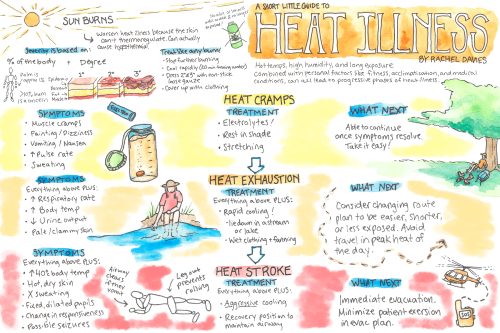 SUN BURNS
Worsen heat illness because the skin
can't thermoregulate. Can actually
cause hypothermia!
Severity is based on:
% of the body + Degree
Palm is
1%
1° 2° 3°
Treat like any burn:
- Stop further burning
- Cool rapidly (20 min running water)
- Dress 2°&3° with non-stick
loose gauze
- Cover up with clothing
A SHORT LITTLE GUIDE TO
HEAT ILLNESS
BY RACHEL DAVIES
Hot temps, high humidity, and long exposure
Combined with personal factors like fitness, acclimization, and medical
conditions, can will lead to progressive phases of heat illness.
HEAT CRAMPS
SYMPTOMS
- Muscle cramps
- Fainting/Dizziness
- Vomiting/Nausea
- ↑ Pulse rate
- Sweating
TREATMENT
- Electrolytes!
- Rest in Shade
- Stretching
WHAT NEXT
Able to continue
once symptoms resolve.
Take it easy!
HEAT EXHAUSTION
SYMPTOMS
Everything above PLUS:
- ↑ Respiratory rate
- ↑ Body temp
- ↓ Urine output
- Pale/clammy skin
TREATMENT
Everything above PLUS:
- Rapid cooling!
- lie down in a stream
or lake
- Wet clothing + fanning
WHAT NEXT
Consider changing route
plan to be easier, shorter,
or less exposed. Avoid
travel in peak heat of
the day.
HEAT STROKE
SYMPTOMS
Everything above PLUS:
- ↑ 40° body temp
- Hot, dry skin
- X sweating
- Fixed, dilated pupils
- Change in responsiveness
- Possible seizures
Airway
clears if
they vomit
Leg out
prevents
rolling
TREATMENT
Everything above PLUS:
- Aggressive cooling
- Recovery position to
maintain airway
WHAT NEXT
Immediate evacuation.
Minimize patient exersion
in evac plan.
SOS